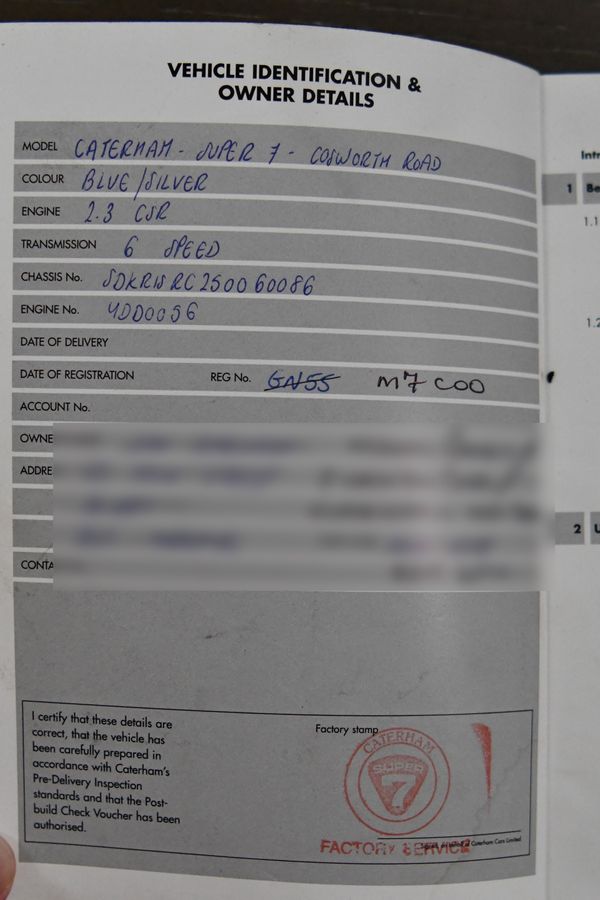 VEHICLE IDENTIFICATION &
OWNER DETAILS
MODEL CATERHAM - SUPER 7 - COSWORTH ROAD
COLOUR BLUE/SILVER
ENGINE 2.3 CSR
TRANSMISSION 6 SPEED
CHASSIS No. SDKRWRC250060086
ENGINE No. 4DD0056
DATE OF DELIVERY
DATE OF REGISTRATION REG No. GN55 M7 COO
ACCOUNT No.
OWNE
ADDRE
CONTA
I certify that these details are
correct, that the vehicle has
been carefully prepared in
accordance with Caterham's
Pre-Delivery Inspection
standards and that the Post-
build Check Voucher has been
authorised.
Factory stamp
CATERHAM
SUPER
7
FACTORY SERVICE
Caterham Cars Limited
Intr
1 Be
1.1
1.2
2 U